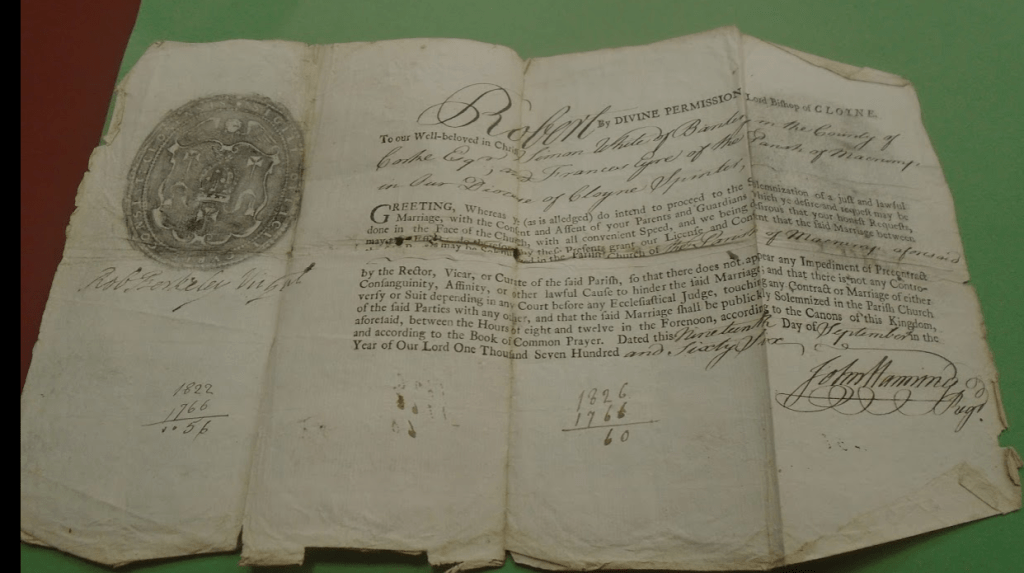 Robert By DIVINE PERMISSION Lord Bishop of CLOYNE.
To our Well-beloved in Christ Simon White of Bantry in the County of
Corke Esqr, and Frances Eyre of the Parish of Macroomp
in Our Diocese of Cloyne Spinster,
GREETING, Whereas ye (as is alledged) do intend to proceed to the Solemnization of a just and lawful
Marriage, with the Consent and Assent of your Parents and Guardians which ye desire and request may be
done in the Face of the Church, with all convenient Speed, and we being desirous that your honest Requests,
may by these Presents grant our License and Consent that the said Marriage between
may be in the Parish Church of the Parish of Macroomp aforesaid
by the Rector, Vicar, or Curate of the said Parish, so that there does not appear any Impediment of Precontract
Consanguinity, Affinity, or other lawful Cause to hinder the said Marriage and that there is not any Contro-
versy or Suit depending in any Court before any Ecclesiastical Judge, touching any Contract or Marriage of either
of the said Parties with any other, and that the said Marriage shall be publickly Solemnized in the Parish Church
aforesaid, between the Hours of eight and twelve in the Forenoon, according to the Canons of this Kingdom,
and according to the Book of Common Prayer. Dated this Nineteenth Day of September in the
Year of Our Lord One Thousand Seven Hundred and Sixty Six
Robt Berkeley
John Hanning
1822
1766
56
1826
1766
60